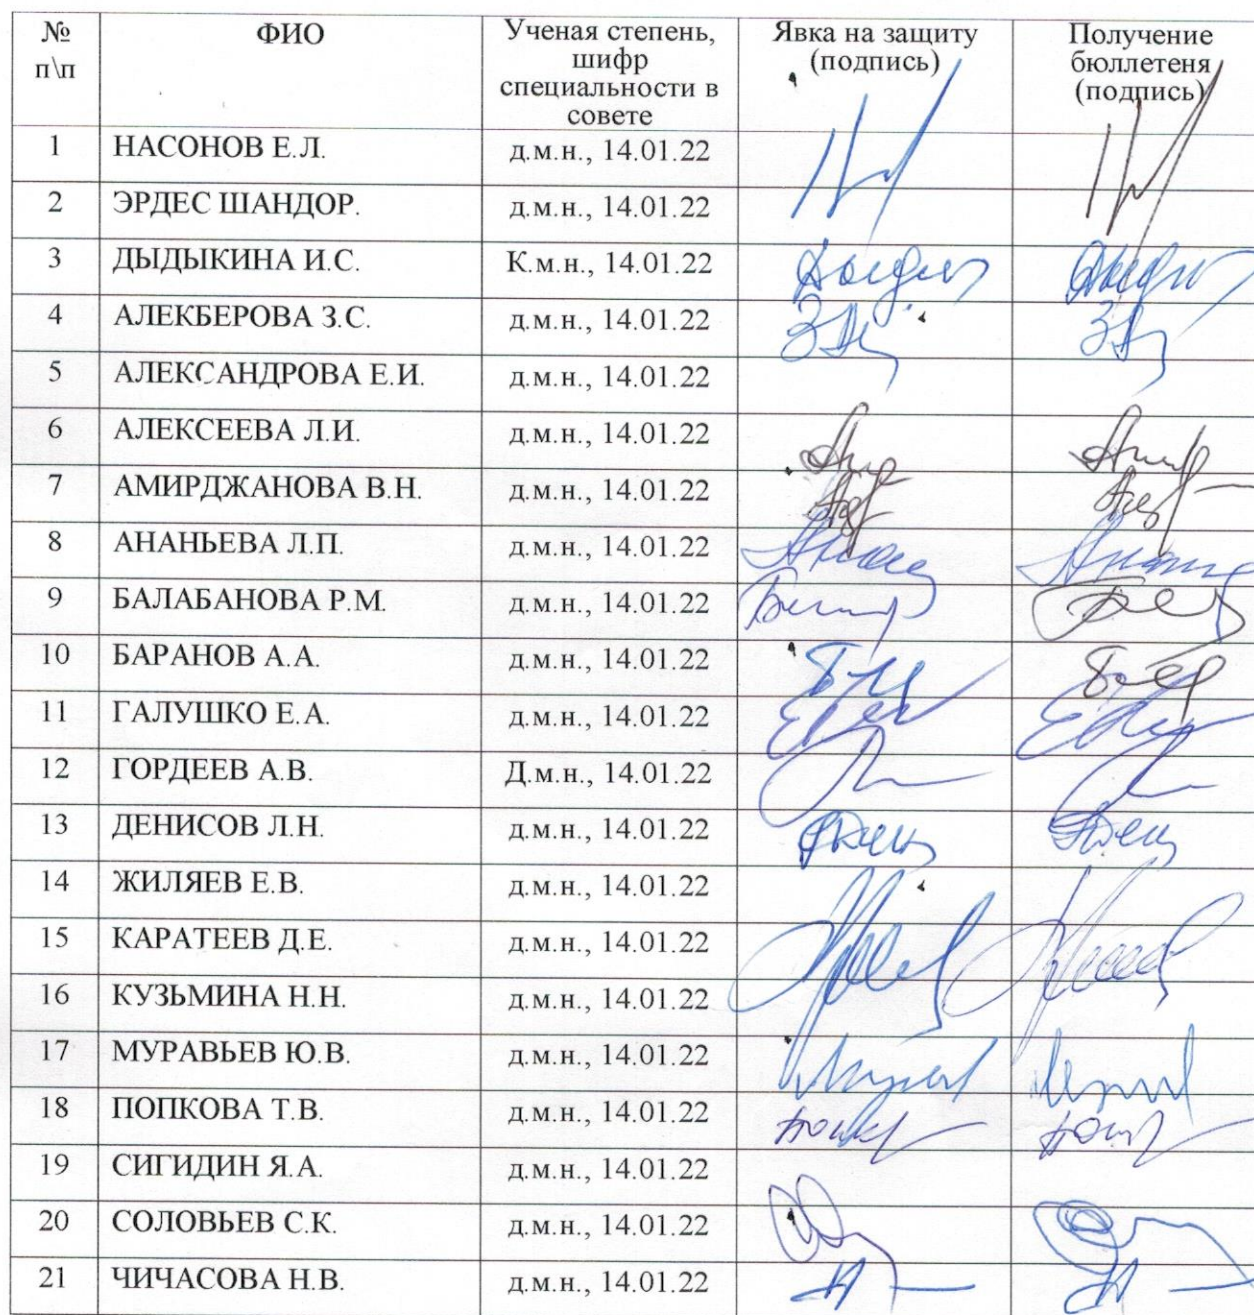 № п\п ФИО Ученая степень, шифр специальности в совете Явка на защиту (подпись) Получение бюллетеня (подпись)
1 НАСОНОВ Е.Л. д.м.н., 14.01.22
2 ЭРДЕС ШАНДОР. д.м.н., 14.01.22
3 ДЫДЫКИНА И.С. К.м.н., 14.01.22
4 АЛЕКБЕРОВА З.С. д.м.н., 14.01.22
5 АЛЕКСАНДРОВА Е.И. д.м.н., 14.01.22
6 АЛЕКСЕЕВА Л.И. д.м.н., 14.01.22
7 АМИРДЖАНОВА В.Н. д.м.н., 14.01.22
8 АНАНЬЕВА Л.П. д.м.н., 14.01.22
9 БАЛАБАНОВА Р.М. д.м.н., 14.01.22
10 БАРАНОВ А.А. д.м.н., 14.01.22
11 ГАЛУШКО Е.А. д.м.н., 14.01.22
12 ГОРДЕЕВ А.В. Д.м.н., 14.01.22
13 ДЕНИСОВ Л.Н. д.м.н., 14.01.22
14 ЖИЛЯЕВ Е.В. д.м.н., 14.01.22
15 КАРАТЕЕВ Д.Е. д.м.н., 14.01.22
16 КУЗЬМИНА Н.Н. д.м.н., 14.01.22
17 МУРАВЬЕВ Ю.В. д.м.н., 14.01.22
18 ПОПКОВА Т.В. д.м.н., 14.01.22
19 СИГИДИН Я.А. д.м.н., 14.01.22
20 СОЛОВЬЕВ С.К. д.м.н., 14.01.22
21 ЧИЧАСОВА Н.В. д.м.н., 14.01.22